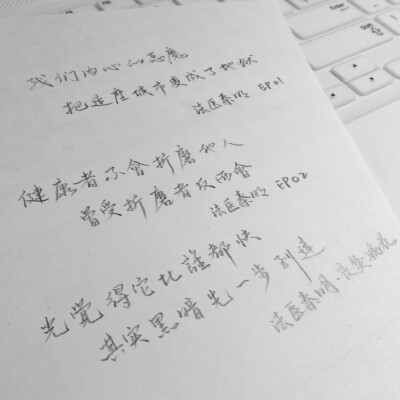 我们内心的恶魔
把这座城市变成了地狱
法医秦明 EP01
健康者不會折磨他人
曾受折磨者反而會
法医秦明 EP02
光覺得它比誰都快
其实黑暗先一步到達
法医秦明·